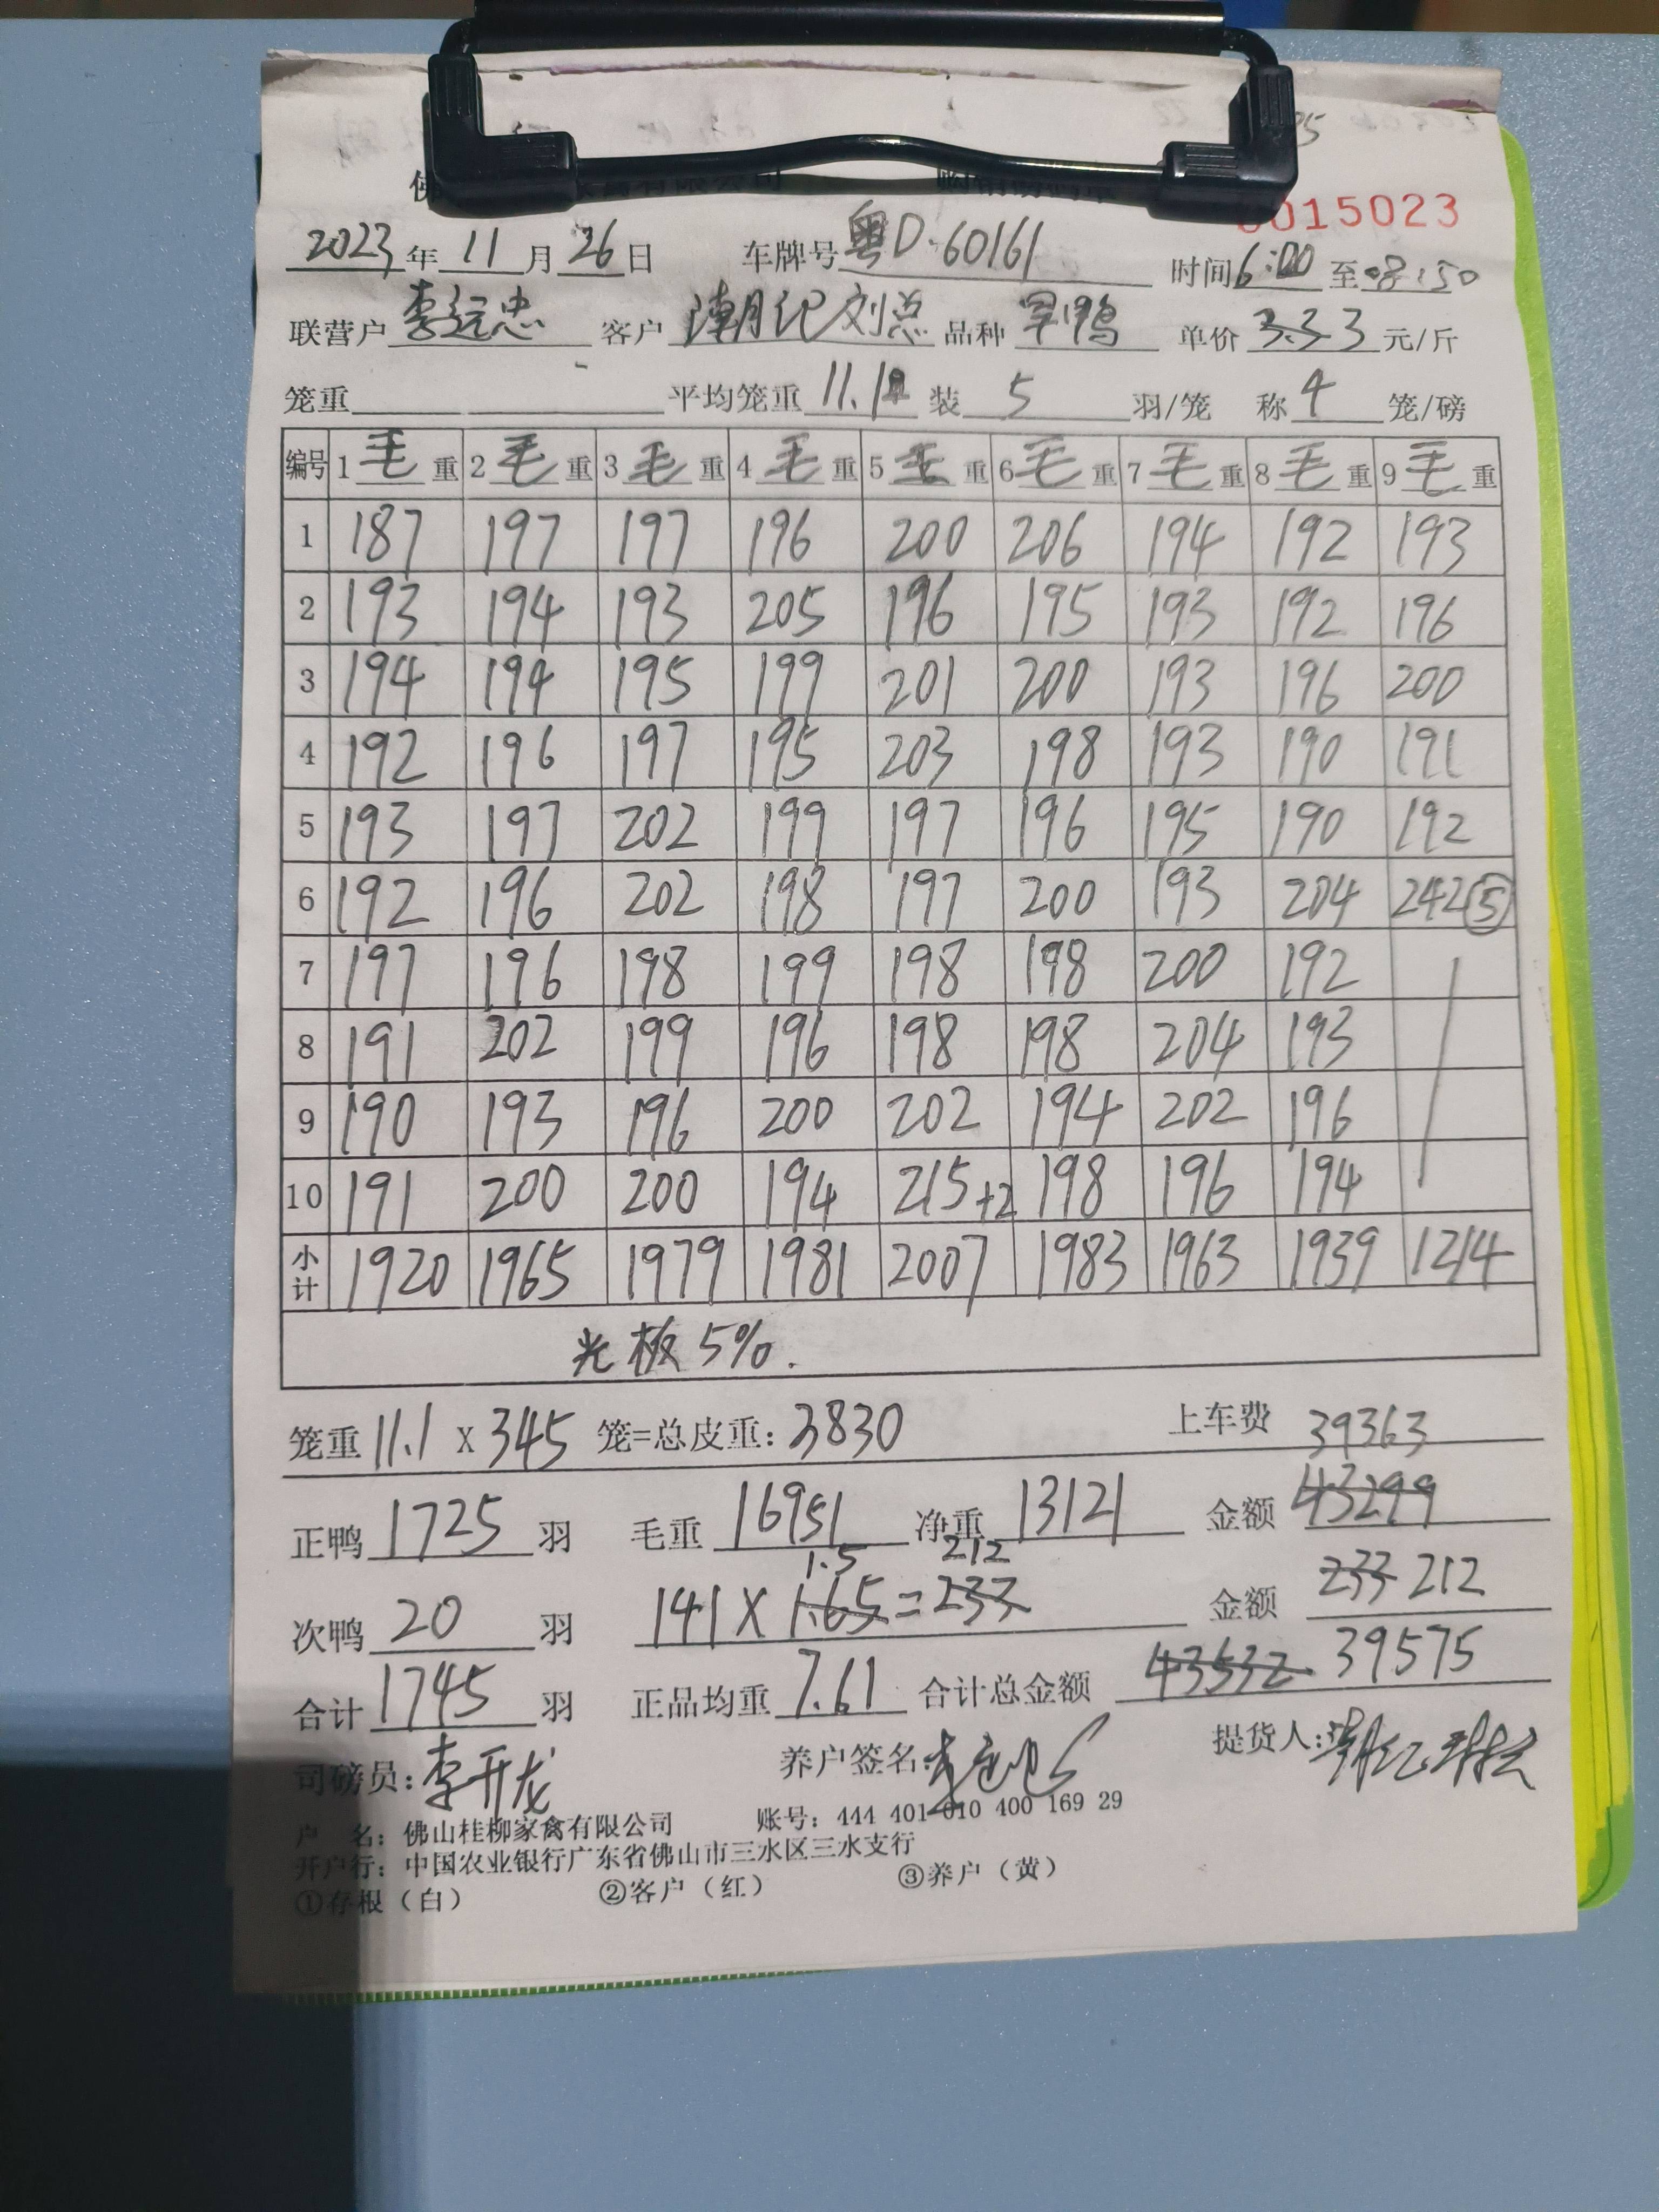 有限公司
0015023
2023年11月26日 车牌号 粤D·60161 时间6:00至08:50
联营户 李远忠 客户 潮记刘总 品种 旱鸭 单价 3.3 3 元/斤
笼重 平均笼重 11.1 装 5 羽/笼 称 4 笼/磅
编号 1毛重 2毛重 3毛重 4毛重 5毛重 6毛重 7毛重 8毛重 9毛重
1 187 197 197 196 200 206 194 192 193
2 193 194 193 205 196 195 193 192 196
3 194 194 195 199 201 200 193 196 200
4 192 196 197 195 203 198 193 190 191
5 193 197 202 199 197 196 195 190 192
6 192 196 202 198 197 200 193 204 242⑤
7 197 196 198 199 198 198 200 192
8 191 202 199 196 198 198 204 193
9 190 193 196 200 202 194 202 196
10 191 200 200 194 215+2 198 196 194
小计 1920 1965 1979 1981 2007 1983 1963 1939 1214
光板5%.
笼重 11.1 X 345 笼=总皮重: 3830 上车费 39363
正鸭 1725 羽 毛重 16951 净重 13121 金额 43299
1.5 212
次鸭 20 羽 141 X 1.65 = 233 金额 233 212
合计 1745 羽 正品均重 7.61 合计总金额 43532 39575
司磅员: 李开龙 养户签名: 提货人:
户 名: 佛山桂柳家禽有限公司 账号: 444 401 010 400 169 29
开户行: 中国农业银行广东省佛山市三水区三水支行
①存根（白） ②客户（红） ③养户（黄）